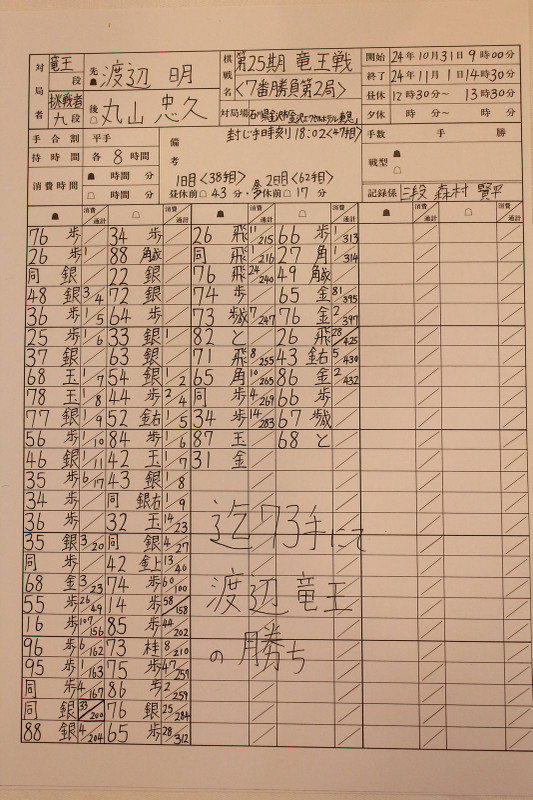 対局者 竜王 段 先☗ 渡辺 明
挑戦者 九段 後☖ 丸山 忠久
棋戦名 第25期 竜王戦
〈7番勝負第2局〉
開始 24年10月31日9時00分
終了 24年11月1日14時30分
昼休 12時30分〜13時30分
夕休 時 分〜 時 分
対局場
手合割 平手
持時間 各8時間
消費時間 ☗ 時間 分
☖ 時間 分
備考
封じ手時刻 18:02〈47手目〉
1日目〈38手目〉 2日目〈62手目〉
昼休前☖43分・昼休前☖17分
手数 手 勝
戦型 ☗
☖
記録係 三段 森村 賢平
☗ 消費 通計 ☖ 消費 通計 ☗ 消費 通計 ☖ 消費 通計 ☗ 消費 通計 ☖ 消費 通計
76 歩 34 歩 26 飛 11/215 66 歩 1/313
26 歩 1 88 角成 同 飛 1/216 27 角 1/314
同 銀 22 銀 76 飛 24/240 49 角成
48 銀 3/4 72 銀 74 歩 65 金 81/395
36 歩 1/5 64 歩 73 歩成 7/247 76 金 2/397
25 歩 1/6 33 銀 1 82 と 26 飛 28/425
37 銀 63 銀 71 飛 8/255 43 金右 5/430
68 玉 1/7 54 銀 1/2 65 角 10/265 86 金 2/432
78 玉 1/8 44 歩 2/4 同 歩 4/269 66 歩
77 銀 1/9 52 金右 1/5 34 歩 14/283 67 歩成
56 歩 1/10 84 歩 1/6 87 玉 68 と
46 銀 1/11 42 玉 1/7 31 金
35 歩 6/17 43 銀 1/8
34 歩 同 銀右 1/9
36 歩 32 玉 14/23
35 銀 3/20 同 銀 4/27
同 歩 42 金上 13/40
68 金 3/23 74 歩 60/100
55 歩 26/49 14 歩 58/158
16 歩 107/156 85 歩 44/202
96 歩 6/162 73 桂 8/210
95 歩 1/163 75 歩 47/257
同 歩 4/167 86 歩 2/259
同 銀 33/200 76 銀 25/284
88 銀 4/204 65 歩 28/312
迄73手にて
渡辺竜王
の勝ち